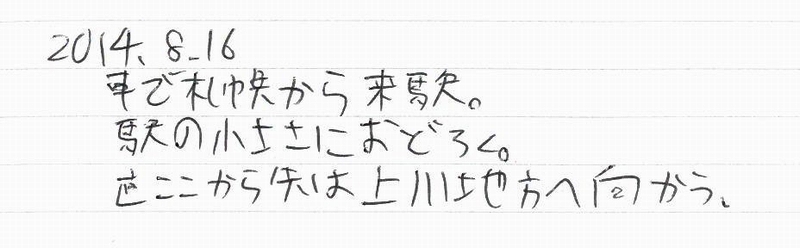 2014. 8.16
車で札幌から来駅。
駅の小ささにおどろく。
ここから先は上川地方へ向かう。